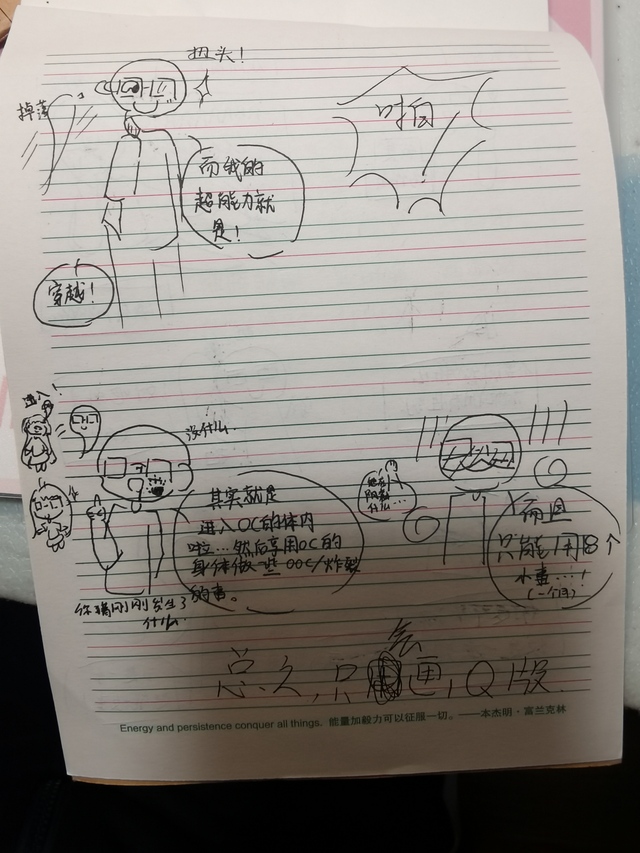 扭头！
掉落
而我的
超能力就
是！
穿越！
进入！
没什么
其实就是
进入OC的体内
啦...然后享用OC的
身体做一些OOC/炸裂
的事。
你猜刚刚发生了
什么
他在
什么...
而且
只能用18个
小妻...！
（一个月）
总之，只会画，Q版
Energy and persistence conquer all things. 能量加毅力可以征服一切。——本杰明·富兰克林